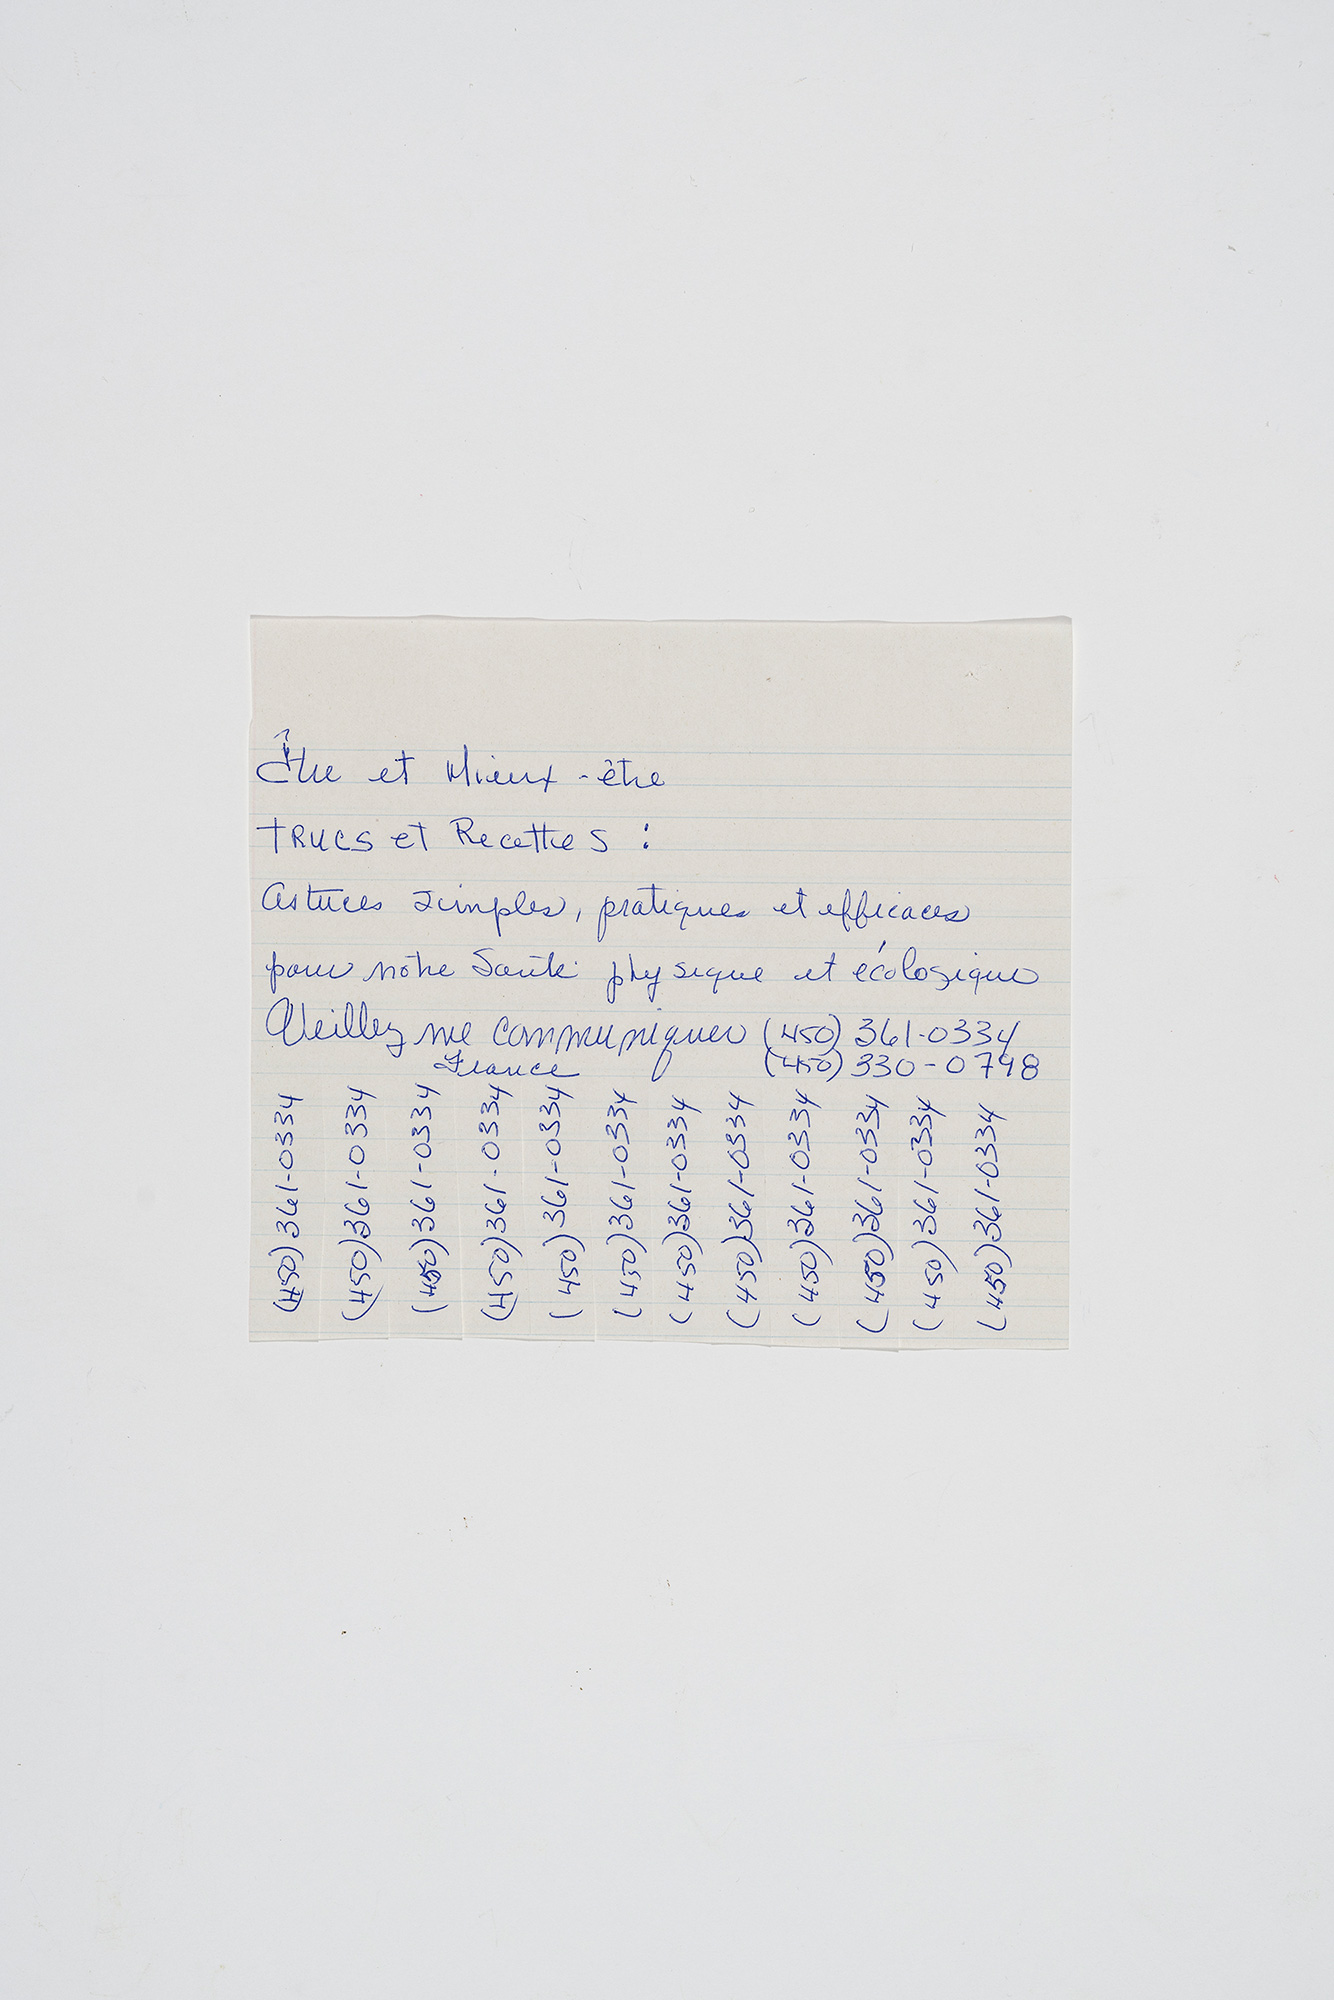 Être et Mieux-être
TRUCS et Recettes :
Astuces simples, pratiques et efficaces
pour notre Santé physique et écologique
Veillez me communiquer (450) 361-0334
France (450) 330-0798
(450) 361-0334
(450) 361-0334
(450) 361-0334
(450) 361-0334
(450) 361-0334
(450) 361-0334
(450) 361-0334
(450) 361-0334
(450) 361-0334
(450) 361-0334
(450) 361-0334
(450) 361-0334